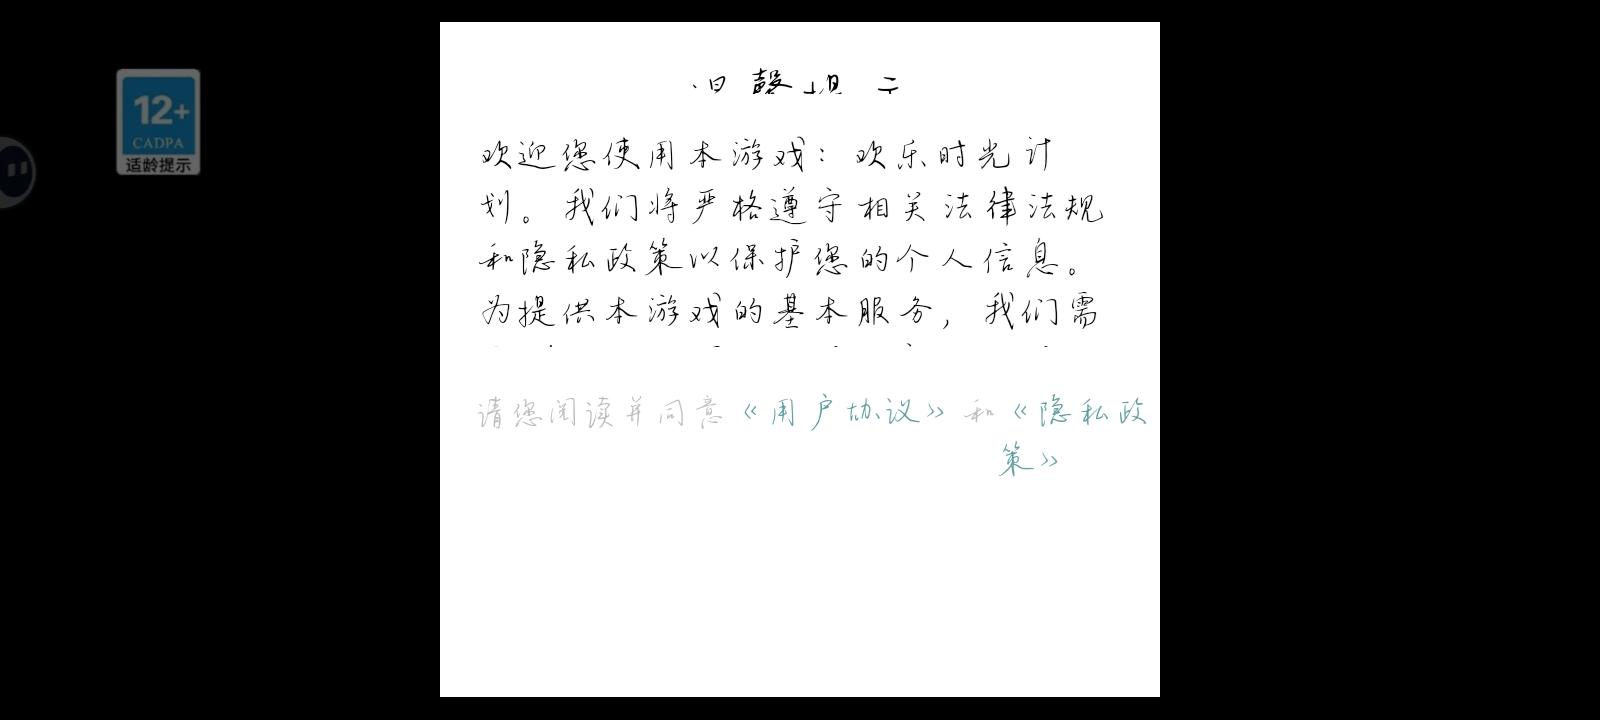 12+
CADPA
适龄提示
欢迎您使用本游戏：欢乐时光计
划。我们将严格遵守相关法律法规
和隐私政策以保护您的个人信息。
为提供本游戏的基本服务，我们需
请您阅读并同意《用户协议》和《隐私政
策》